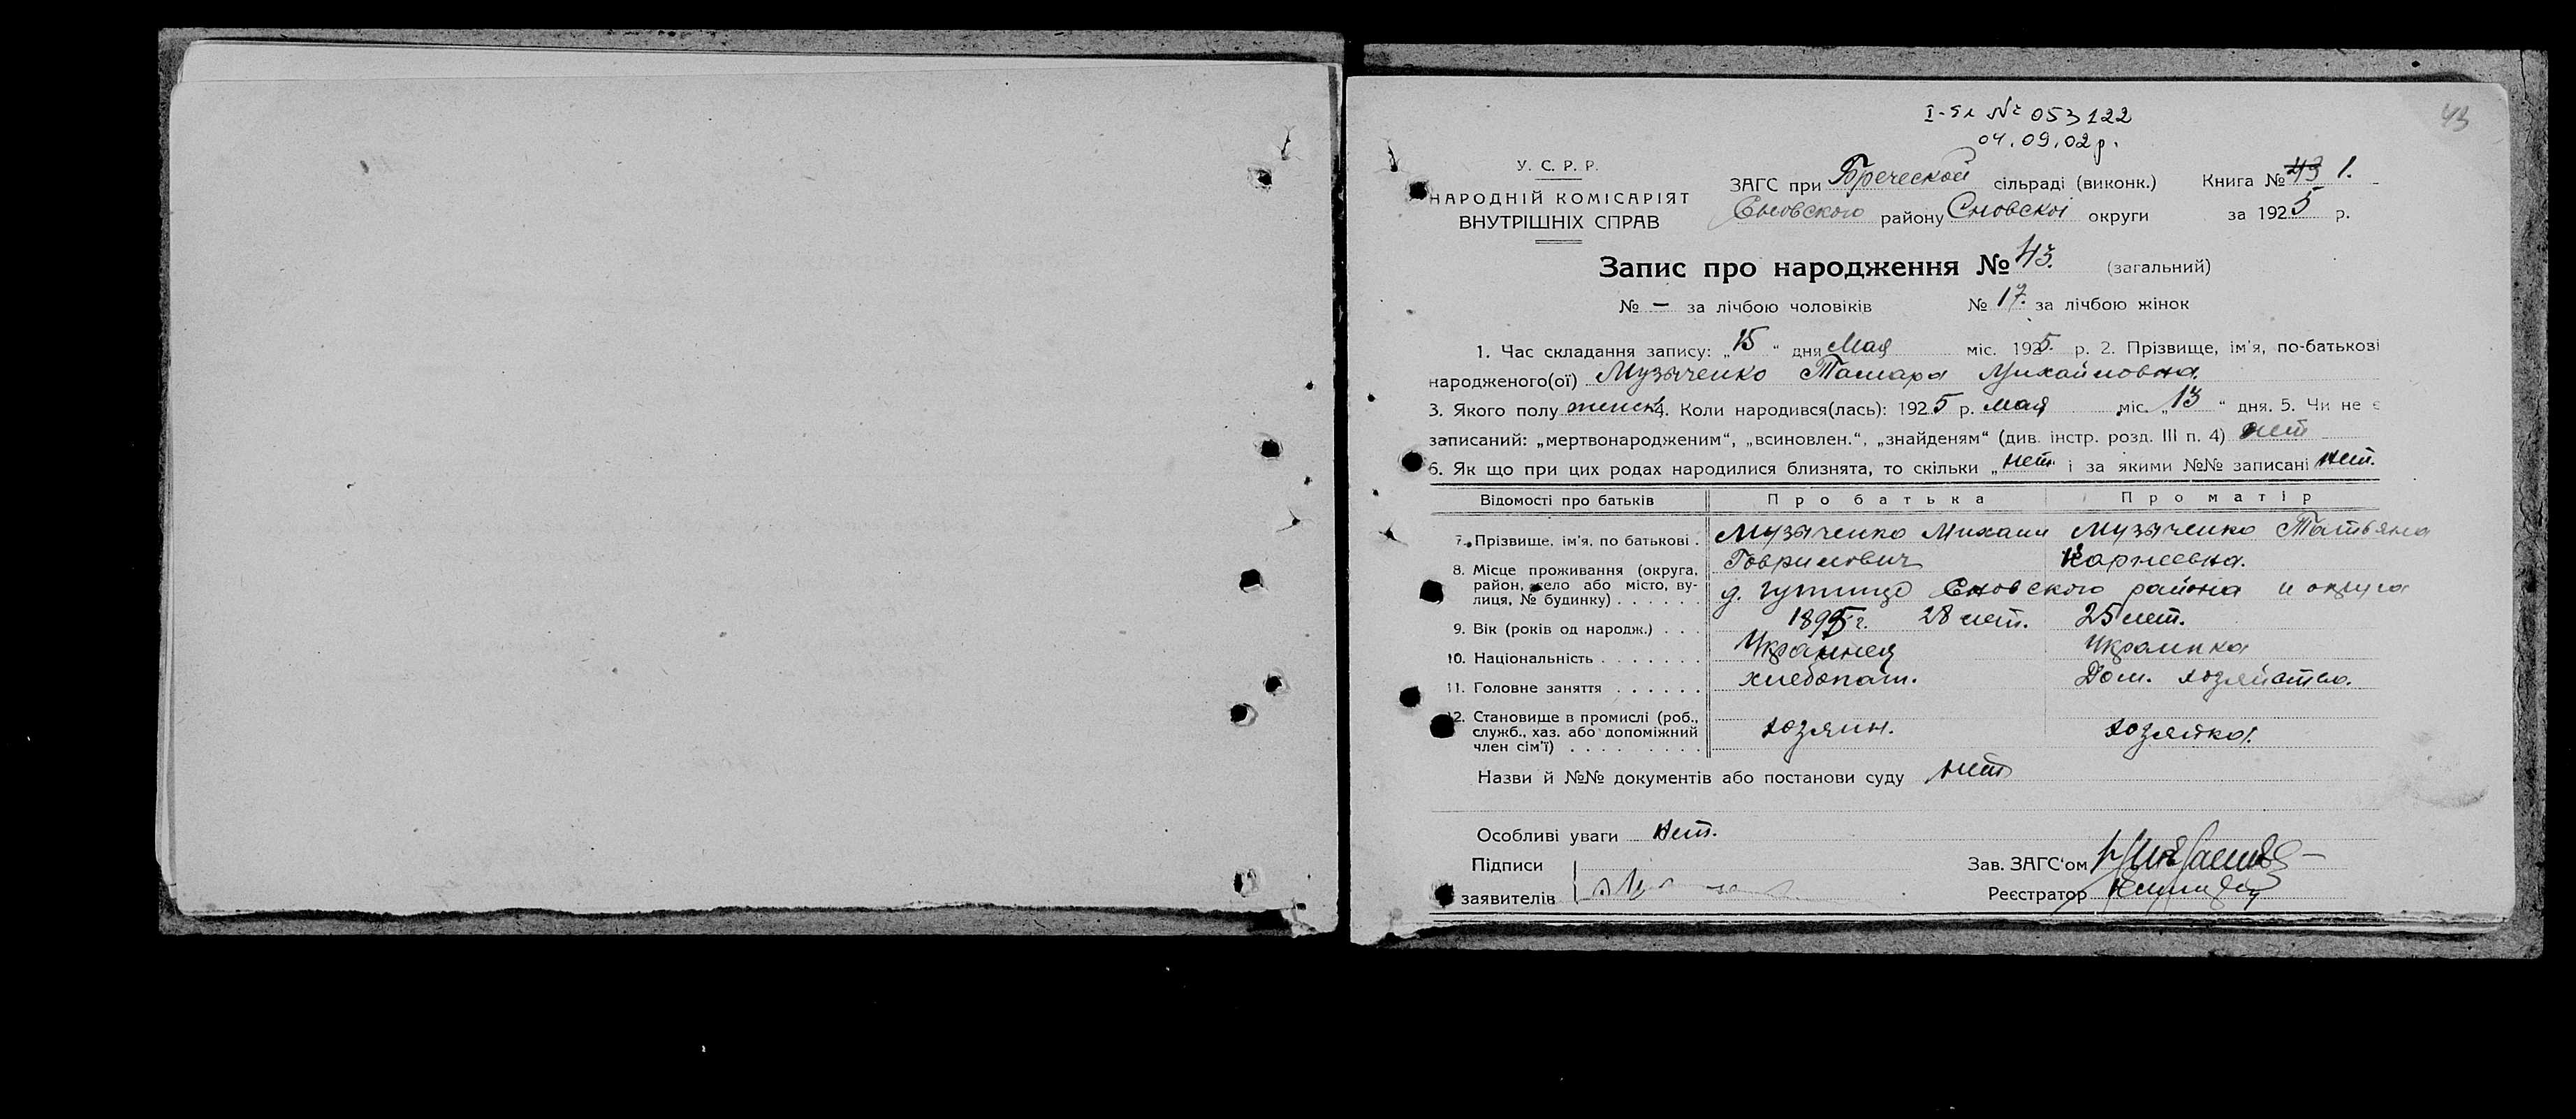 І-ял № 053122
04.09.02 р.
43
У. С. Р. Р.
НАРОДНІЙ КОМІСАРІЯТ
ВНУТРІШНІХ СПРАВ
ЗАГС при Гречесской сільраді (виконк.) Книга № 43 1.
Сновского району Сновскої округи за 1925 р.
Запис про народження № 43. (загальний)
№ — за лічбою чоловіків № 17. за лічбою жінок
1. Час складання запису: „15“ дня Мая міс. 1925 р. 2. Прізвище, ім'я, по-батькові
народженого(ої) Музыченко Тамара Михайловна.
3. Якого полу женск 4. Коли народився(лась): 1925 р. мая міс. „13“ дня. 5. Чи не є
записаний: „мертвонародженим“, „всиновлен.“, „знайденям“ (див. інстр. розд. III п. 4) нет
6. Як що при цих родах народилися близнята, то скільки „нет. і за якими №№ записані нет.
Відомості про батьків Про батька Про матір
7. Прізвище, ім'я, по батькові . Музыченко Михаил Гаврилович Музыченко Татьяна Карнеевна.
8. Місце проживання (округа,
район, село або місто, ву-
лиця, № будинку) . . . . . . д. Гутище Сновского района и округа
9. Вік (років од народж.) . . . 1895 г. 28 лет. 25 лет.
10. Національність . . . . . . . Украинец Украинка
11. Головне заняття . . . . . . хлебопаш. Дом. хозяйство.
12. Становище в промислі (роб.,
служб., хаз. або допоміжний
член сім'ї) . . . . . . . . . хозяин. хозяйка.
Назви й №№ документів або постанови суду нет
Особливі уваги нет.
Підписи
заявителів
Зав. ЗАГС'ом
Реєстратор